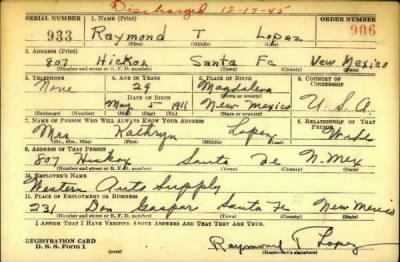 Discharged 12-17-45
SERIAL NUMBER 1. NAME (Print) ORDER NUMBER
933 Raymond T Lopez 906
(First) (Middle) (Last)
2. ADDRESS (Print)
807 Hickox Santa Fe New Mexico
(Number and street or R. F. D. number) (Town) (County) (State)
3. TELEPHONE 4. AGE IN YEARS 5. PLACE OF BIRTH 6. COUNTRY OF CITIZENSHIP
None 29 Magdalena
DATE OF BIRTH (Town or county)
May 5 1911 New Mexico U.S.A.
(Mo.) (Day) (Yr.) (State or country)
7. NAME OF PERSON WHO WILL ALWAYS KNOW YOUR ADDRESS 8. RELATIONSHIP OF THAT PERSON
Mrs Kathryn Lopez Wife
(Mr., Mrs., Miss) (First) (Middle) (Last)
9. ADDRESS OF THAT PERSON
807 Hickox Santa Fe N. Mex
(Number and street or R. F. D. number) (Town) (County) (State)
10. EMPLOYER'S NAME
Western Auto Supply
11. PLACE OF EMPLOYMENT OR BUSINESS
231 Don Gaspar Santa Fe New Mexico
(Number and street or R. F. D. number) (Town) (County) (State)
I AFFIRM THAT I HAVE VERIFIED ABOVE ANSWERS AND THAT THEY ARE TRUE.
REGISTRATION CARD
D. S. S. Form 1
Raymond T. Lopez
(Registrant's signature)